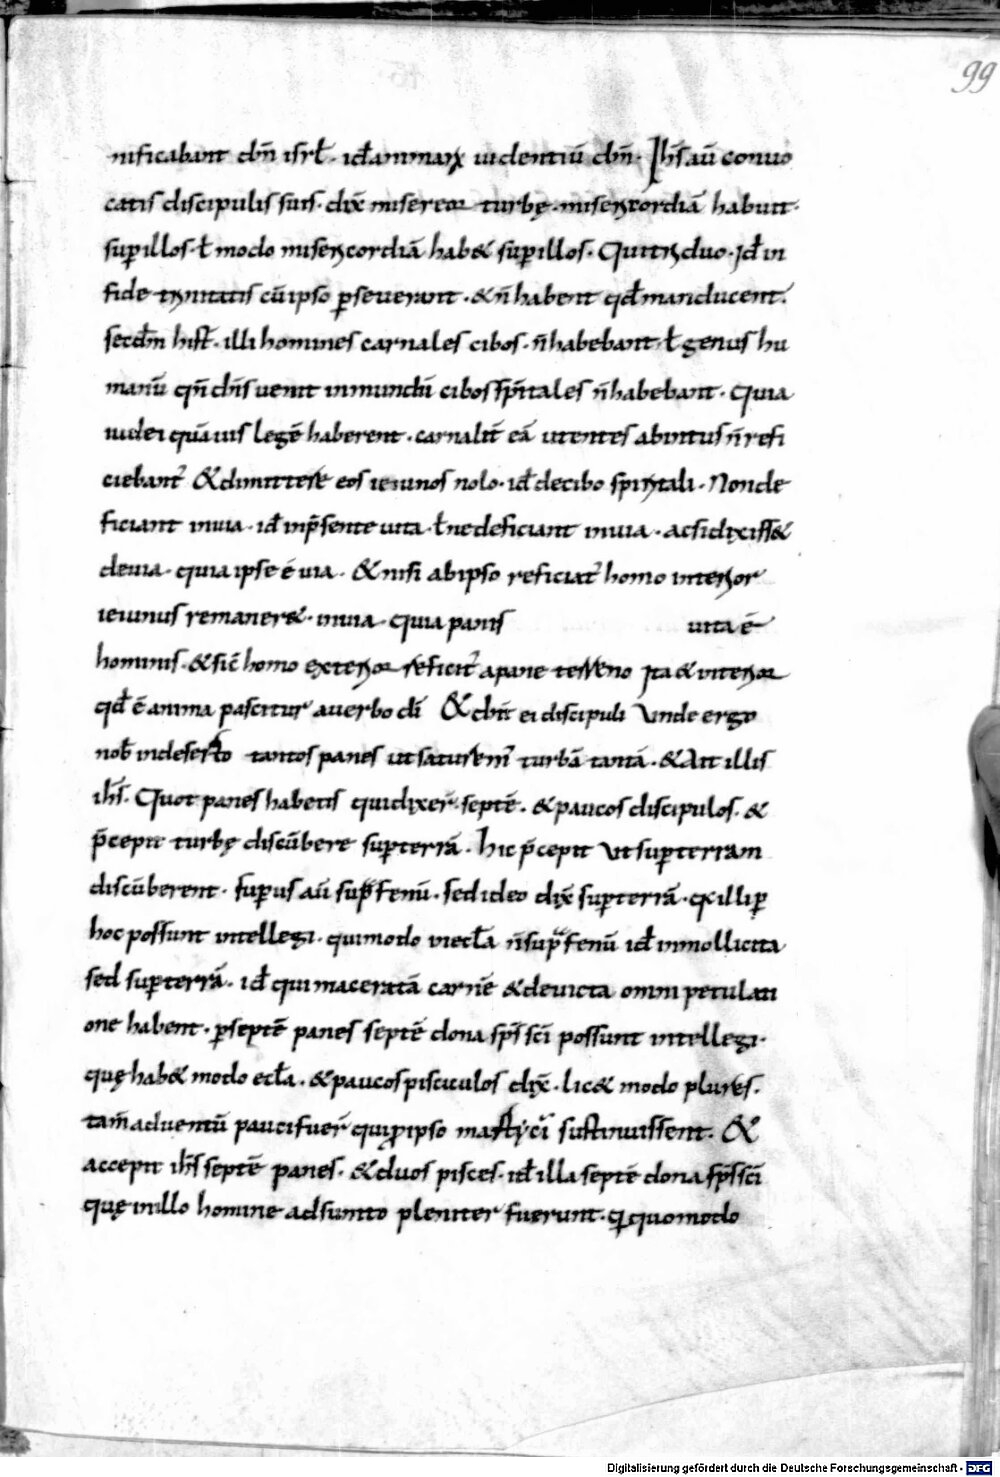 99
nificabant dm̄ isrł · id̄ animarum uidentiū dm̄ · Ihs̄ aū conuo
catis discipulis suis · dix̄ misereor turbę · misericordiā habuit ·
sup̱ illos · ł modo misericordiā hab& sup̱ illos · Qui triduo · id̄ in
fide trinitatis cū ipso p̱seuerant · & n̄ habent qd̄ manducent ·
secdm̄ hist̄ · illi homines carnales cibos · n̄ habebant · ł genus hu
manū qn̄ dn̄s uenit in mundū cibos sp̄itales n̄ habebant · Quia
iudei quāuis legē haberent · carnalit̄ eā utentes ab intus n̄ refi
ciebant᷑ & dimittere eos ieiunos nolo · id̄ de cibo spiritali · Non de
ficiant in uia · id̄ in p̄sente uita · ł ne deficiant in uia · ac si dixiss&
de uia · quia ipse ē uia · & nisi ab ipso reficiat᷑ homo interior
ieiunus remaner& · in uia · quia panis uita ē
hominis · & sic̄ homo exterior reficit᷑ a pane terreno Ita & interior
qd̄ ē anima pascitur a uerbo dī & dn̄t ei discipuli Unde ergo
nob̄ in deserto tantos panes ut saturem᷑ turbā tantā · & Ait illis
ihs̄ · Quot panes habetis qui dixer̄ · septē · & paucos discipulos · &
p̄cepit turbę discūbere sup̱ terrā · hic p̄cepit ut sup̱ terram
discūberent · sup̱ius aū sup̱ fenū · sed ideo dix̄ sup̱ terrā · q̄ illi p̱
hoc possunt intellegi · qui modo in ecłā n̄ sup̱ fenū id̄ in mollicita
sed sup̱ terrā · id̄ qui maceratā carnē & deuicta omni petulati
one habent · p̱ septē panes septē dona sp̄s sc̄i possunt intellegi ·
quę hab& modo ecłā · & paucos pisciculos dix̄ · lic& modo plures ·
tam̄ aduentū pauci fuer̄ qui ꝓ ipso martyriū sustinuissent · &
accepit ihs̄ septē panes · & duos pisces · id̄ illa septē dona sp̄s sc̄i
quę in illo homine adsumto pleniter fuerunt · qi quomodo
Digitalisierung gefördert durch die Deutsche Forschungsgemeinschaft - DFG